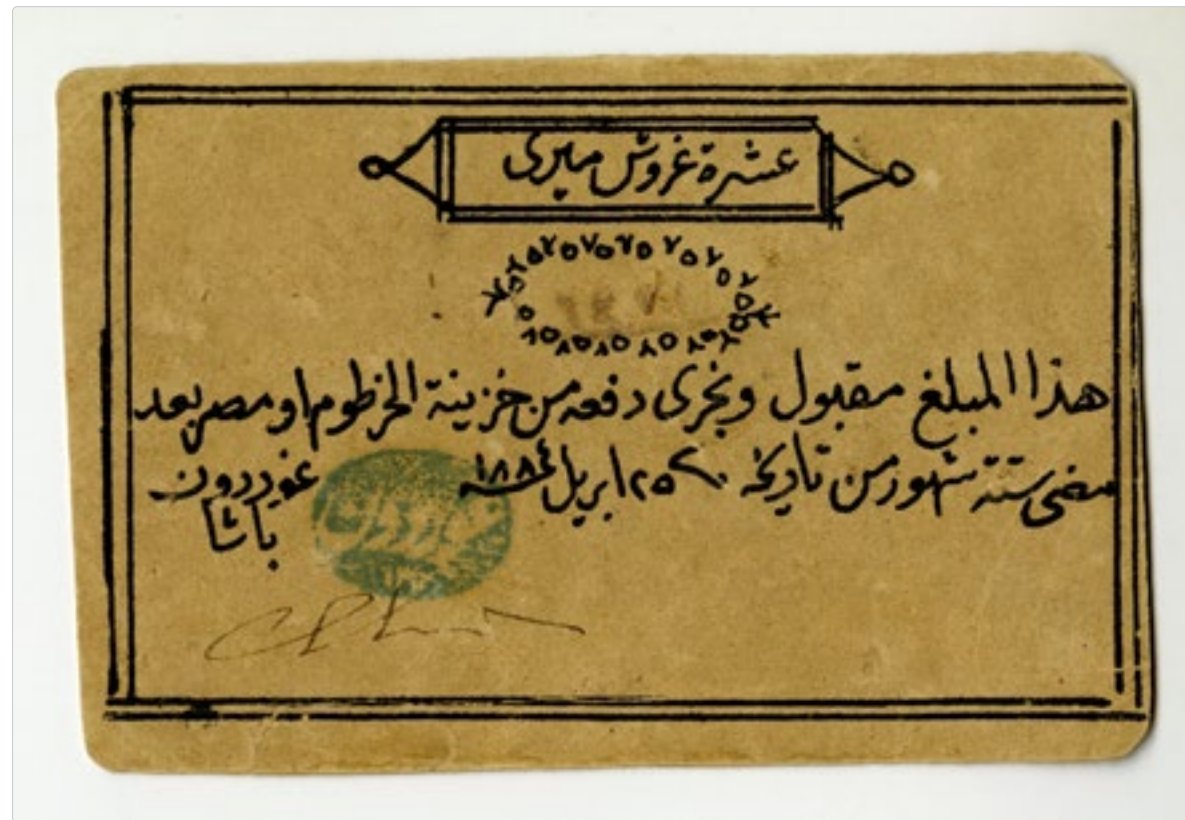 عشرة غروش ميرى
هذا المبلغ مقبول ويجرى دفعه من خزينة الخرطوم او مصر بعد
مضى ستة شهور من تاريخه ٢٥ ابريل سنة ١٨٨٤ غوردون
باشا